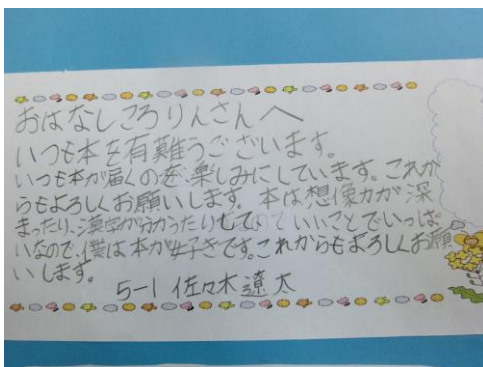 おはなしころりんさんへ
いつも本を有難うございます。
いつも本が届くのを、楽しみにしています。これか
らもよろしくお願いします。本は想像力が深
まったり、漢字が分かったりして、いいことでいっぱ
いなので、僕は本が好きです。これからもよろしくお願
いします。
5-1 佐々木遼太